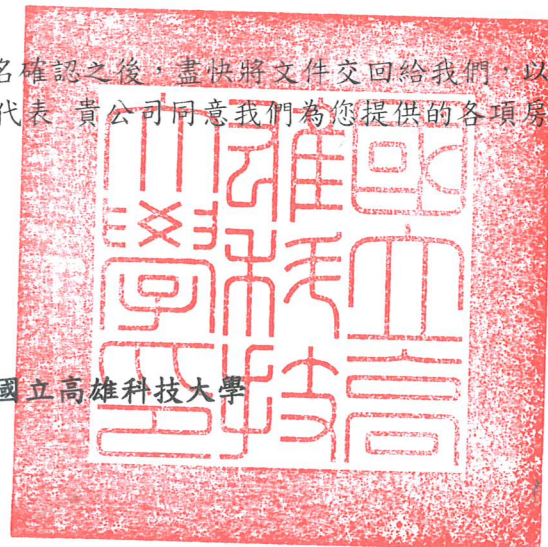 名確認之後，盡快將文件交回給我們，以
代表 貴公司同意我們為您提供的各項房
國立高雄科技大學
國立高
雄科技
大學印